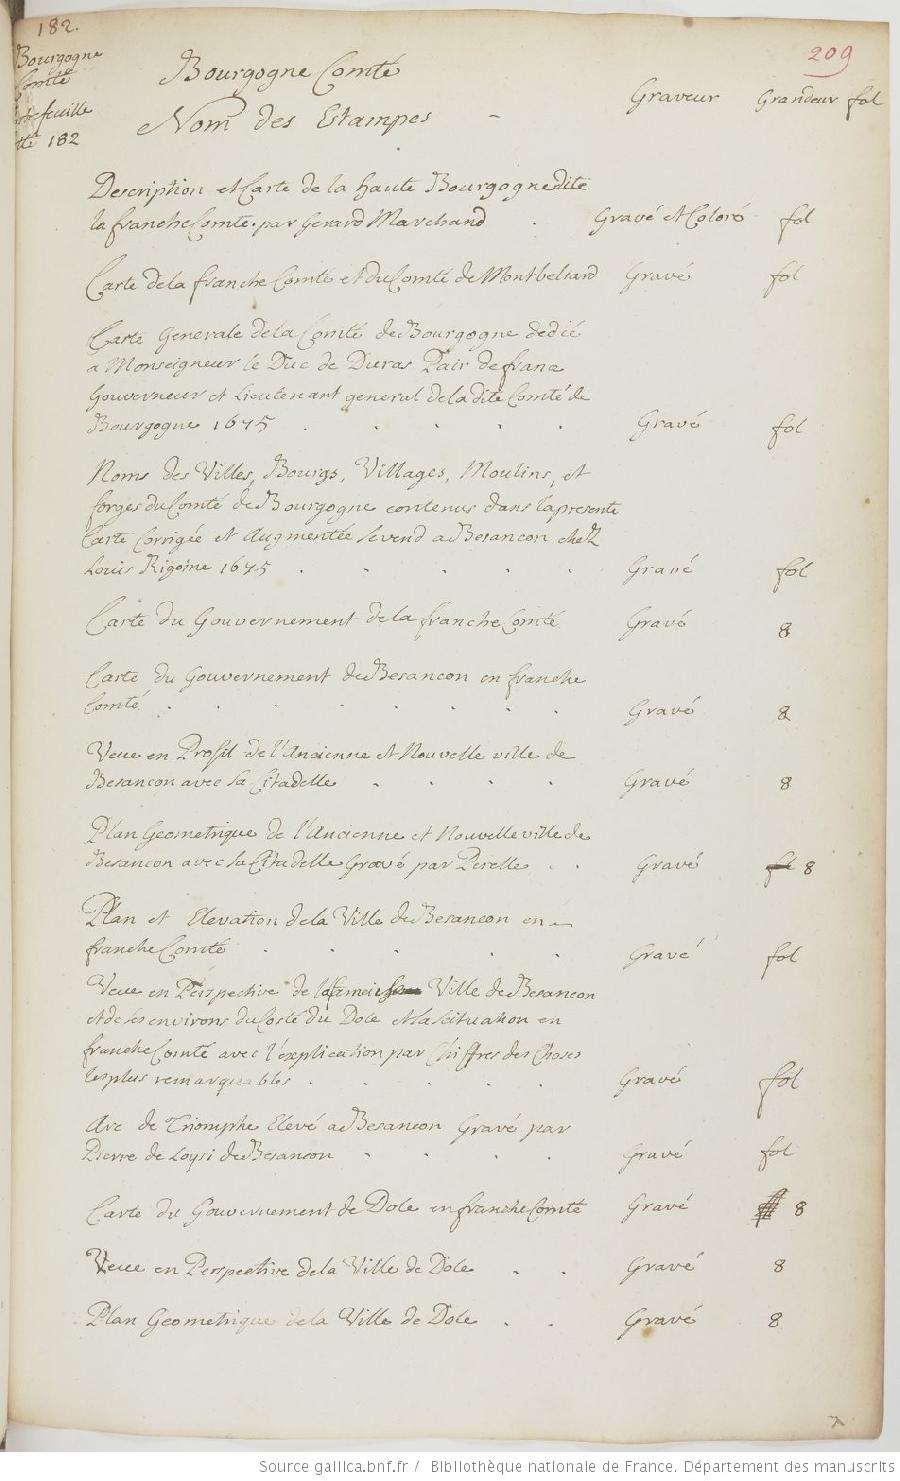 182.
209
Bourgogne
Comté
182
Bourgogne Comté
Nom des Estampes
Graveur Grandeur fol
Description et Carte de la haute Bourgogne dite
la franche Comte. par Gerard Marchand . Gravé et Coloré fol
Carte de la franche Comté et du Comté de Montbeliard Gravé fol
Carte Generale de la Comté de Bourgogne dedié
a Monseigneur le Duc de Duras Pair de france
Gouverneur et Lieutenant general de la dite Comté de
Bourgogne 1675 . . . . . Gravé fol
Noms des Villes, Bourgs, Villages, Moulins, et
forges du Comté de Bourgogne contenus dans la presente
Carte Corrigée et Augmentée se vend a Besancon chez
Louis Rigoine 1675 . . . . . Gravé fol
Carte du Gouvernement de la franche Comté Gravé 8
Carte du Gouvernement de Besancon en franche
Comté . . . . . . . . Gravé 8
Veue en Profil de l'Ancienne et Nouvelle ville de
Besancon avec sa Citadelle . . . . Gravé 8
Plan Geometrique de l'Ancienne et Nouvelle ville de
Besancon avec sa Citadelle Gravé par Perelle . . Gravé fol 8
Plan et Elevation de la Ville de Besancon en
franche Comté . . . . . Gravé fol
Veue en Perspective de la Ville de Besancon
et de ses environs du Costé du Dole et la scituation en
franche Comté avec l'explication par Chiffres des Choses
les plus remarquables . . . . . Gravé fol
Arc de Triomphe Elevé a Besancon Gravé par
Pierre de Loysi de Besancon . . . . Gravé fol
Carte du Gouvernement de Dole en franche Comté Gravé 8
Veue en Perspective de la Ville de Dole . . Gravé 8
Plan Geometrique de la Ville de Dole . . Gravé 8
Source gallica.bnf.fr / Bibliothèque nationale de France. Département des manuscrits